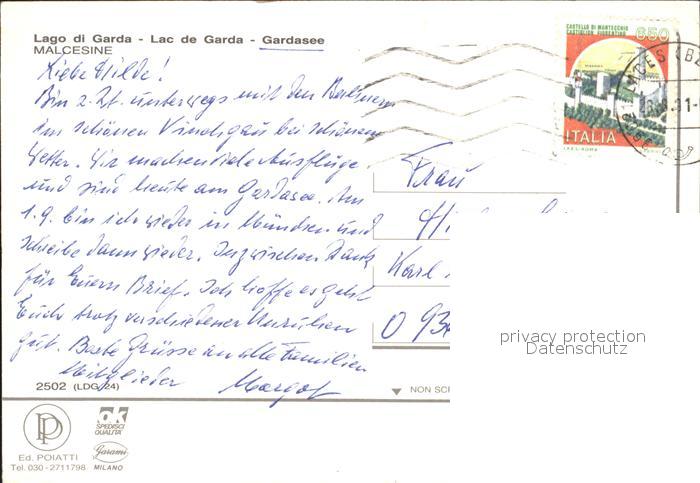 Lago di Garda - Lac de Garda - Gardasee
MALCESINE
Liebe Hilde!
Bin z. Zt. unterwegs mit den
im schönen Vinschgau bei schönem
Wetter. Wir machen viele Ausflüge
und sind heute am Gardasee. Am
1.9. bin ich wieder in München und
schreibe dann wieder. Inzwischen Dank
für Euern Brief. Ich hoffe es geht
Euch trotz verschiedener Unruhen
gut. Beste Grüsse an alle Familien
Mitglieder Margot
2502 (LDG 24)
CASTELLO DI MONTECCHIO
CASTIGLION FIORENTINO
650
ITALIA
I.P.Z.S. ROMA
Frau
Karl
O 93
privacy protection
Datenschutz
NON SCR
PP
Ed. POIATTI
Tel. 030 - 2711798
ok
SPEDISCI
QUALITA'
Garami
MILANO